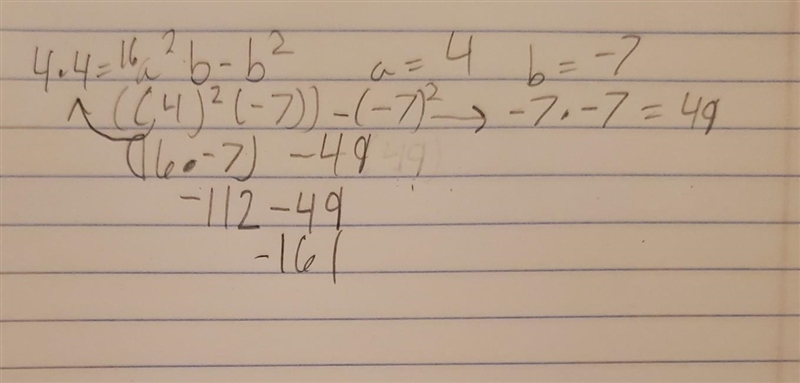 4·4=16 a² b - b² a = 4 b = -7
((4)² (-7)) - (-7)² → -7 · -7 = 49
(16 · -7) - 49
-112 - 49
-161